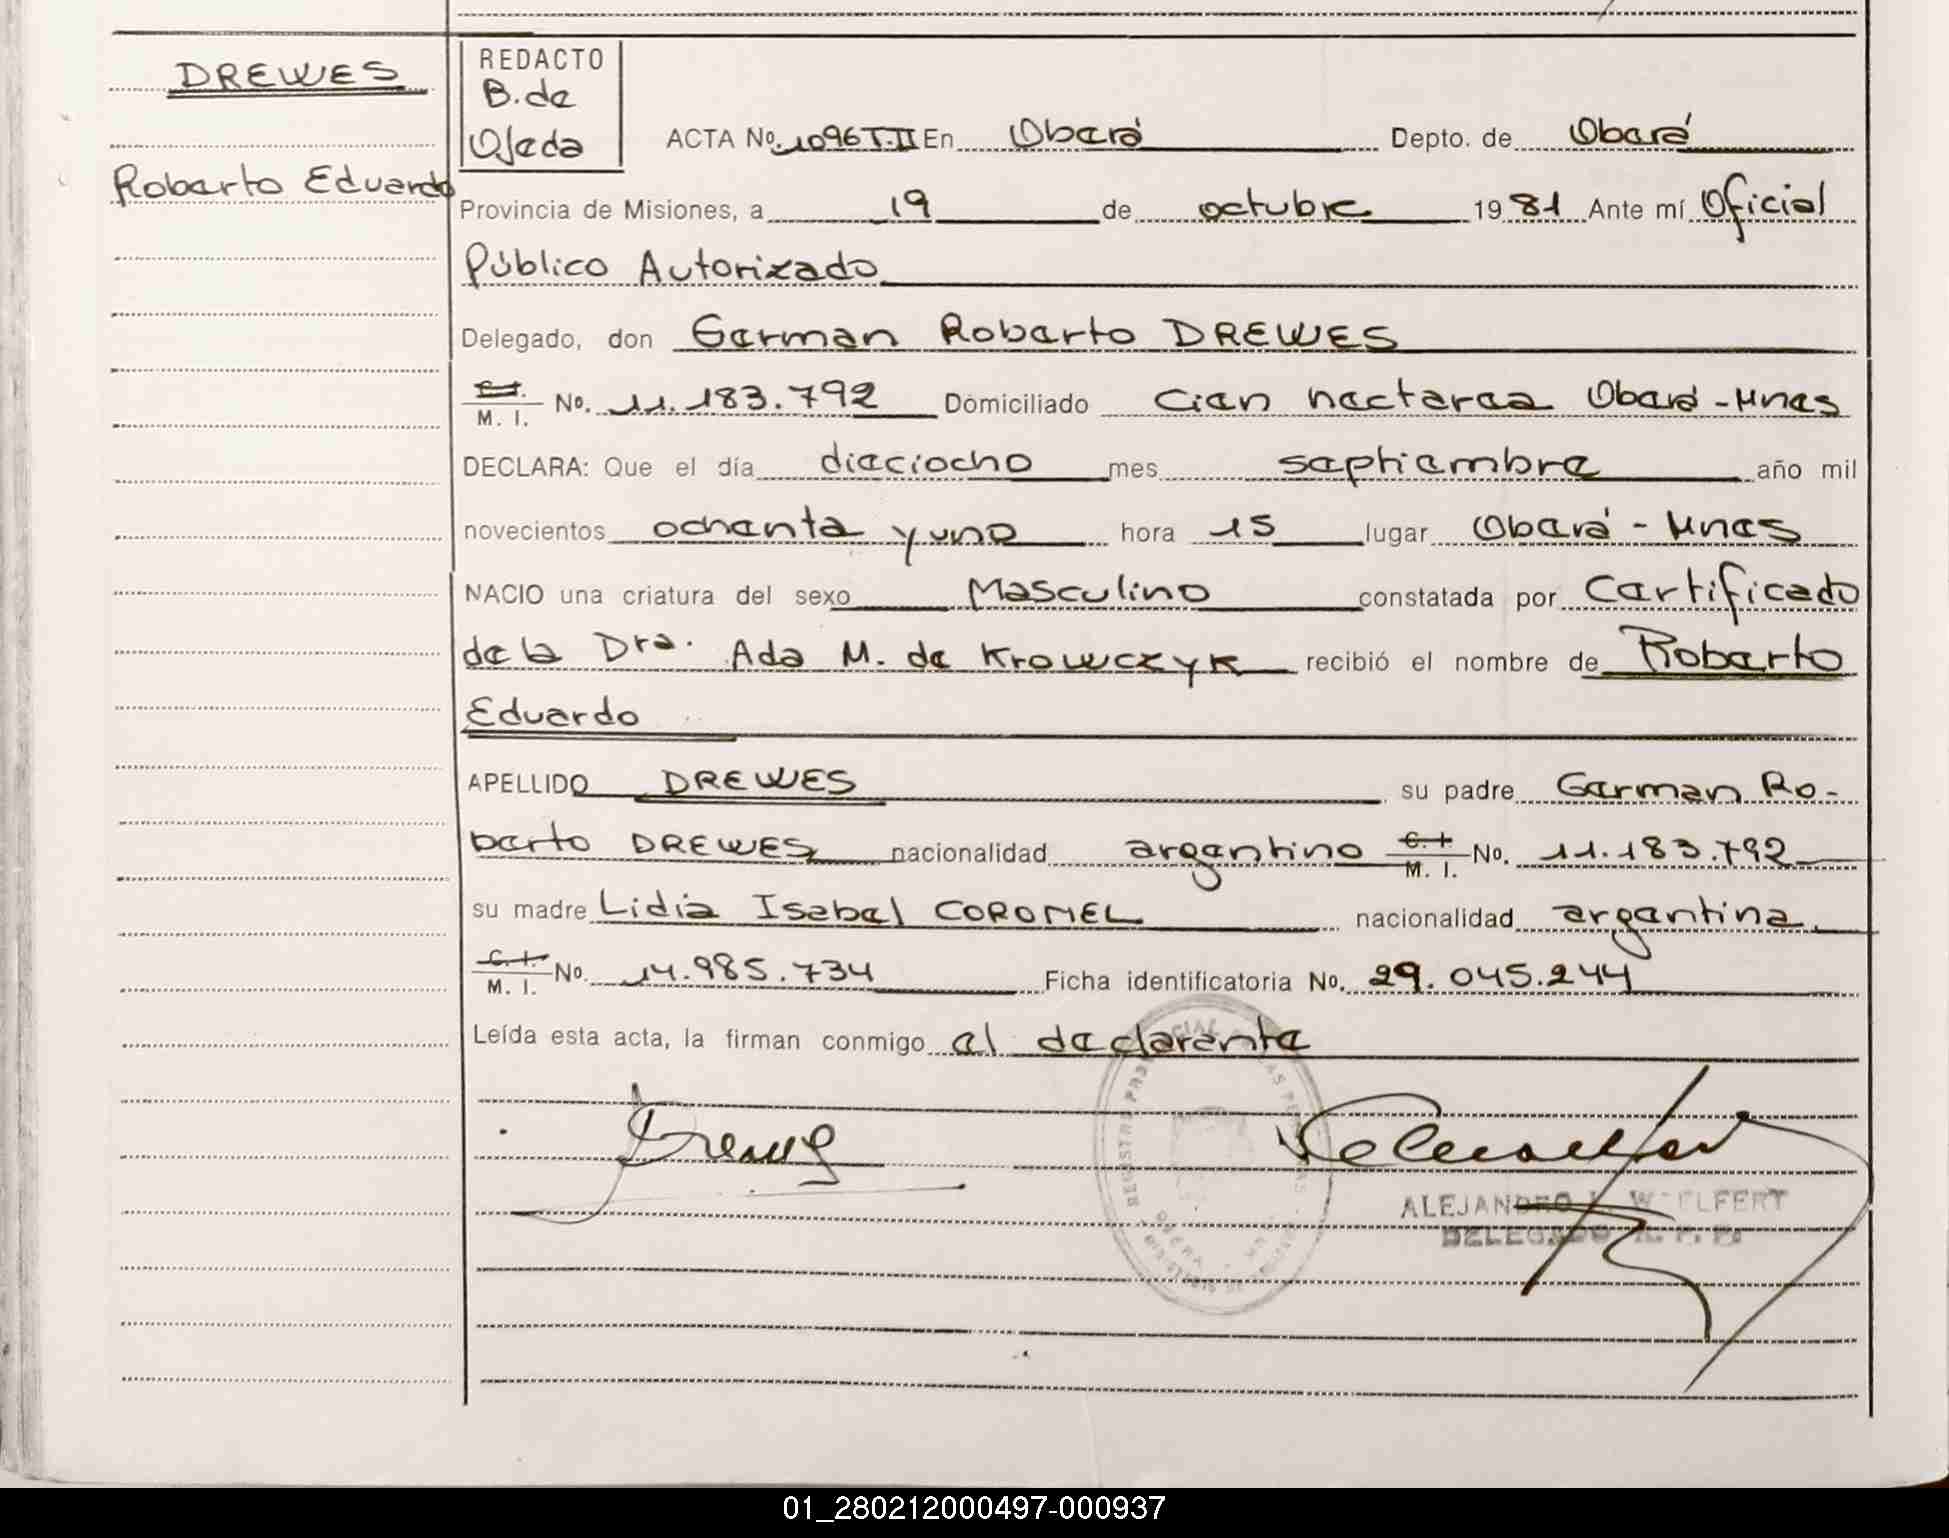 DREWES
Roberto Eduardo
REDACTO
B. de
Ojeda
ACTA No. 1096 T.II En Oberá Depto. de Oberá
Provincia de Misiones, a 19 de octubre 1981 Ante mí Oficial
Público Autorizado
Delegado, don German Roberto DREWES
C.I. M. I. No. 11.183.792 Domiciliado cien hectareas Oberá-Mnes
DECLARA: Que el día dieciocho mes septiembre año mil
novecientos ochenta y uno hora 15 lugar Oberá - Mnes
NACIO una criatura del sexo Masculino constatada por Certificado
de la Dra. Ada M. de Krowczyk recibió el nombre de Roberto
Eduardo
APELLIDO DREWES su padre German Ro-
berto DREWES nacionalidad argentino C.I. M. I. No. 11.183.792
su madre Lidia Isabel CORONEL nacionalidad argentina
C.I. M. I. No. 14.985.734 Ficha identificatoria No. 29.045.244
Leída esta acta, la firman conmigo el declarante
Drewes
ALEJANDRO WOELFERT
DELEGADO R. P. P.
01_280212000497-000937